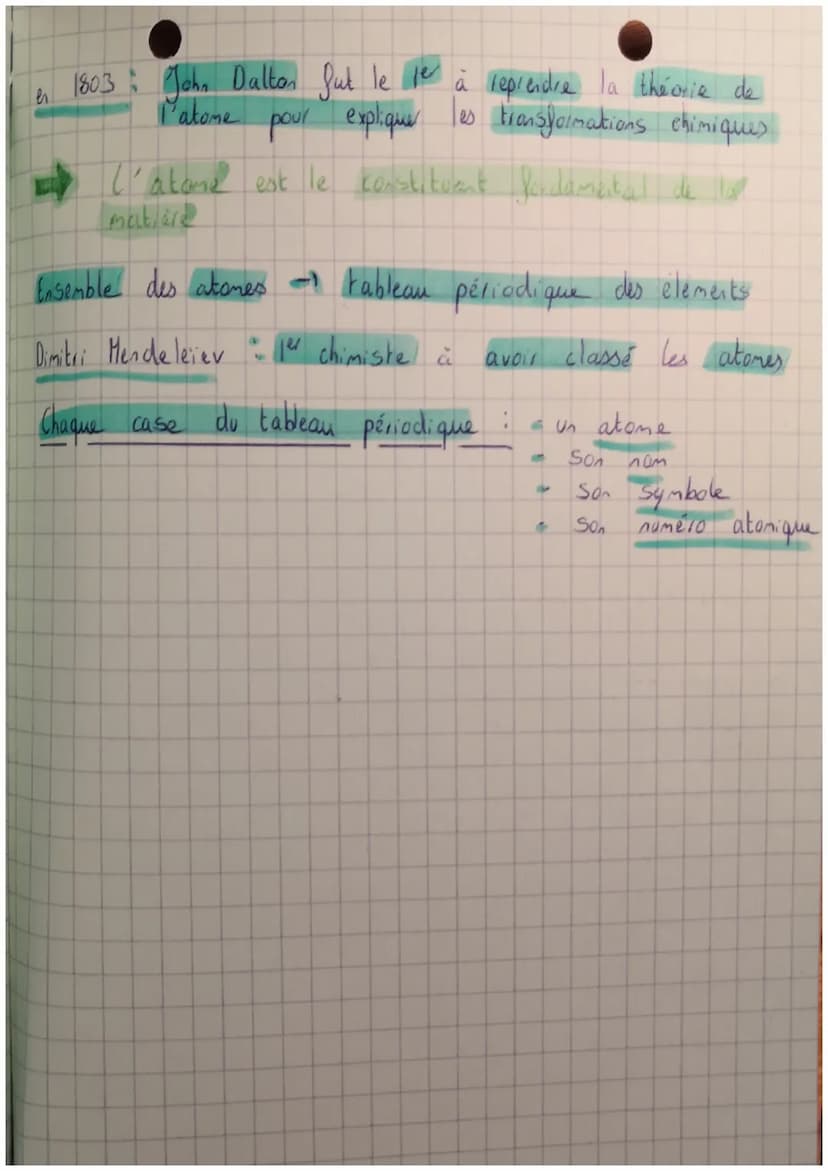 en 1803 : John Dalton fut le 1er à reprendre la théorie de
l'atome pour expliquer les transformations chimiques
➡ l'atome est le constituant fondamental de la
matière
Ensemble des atomes → tableau périodique des éléments
Dimitri Mendeleïev : 1er chimiste à avoir classé les atomes
Chaque case du tableau périodique : - un atome
- son nom
- son symbole
- son numéro atomique